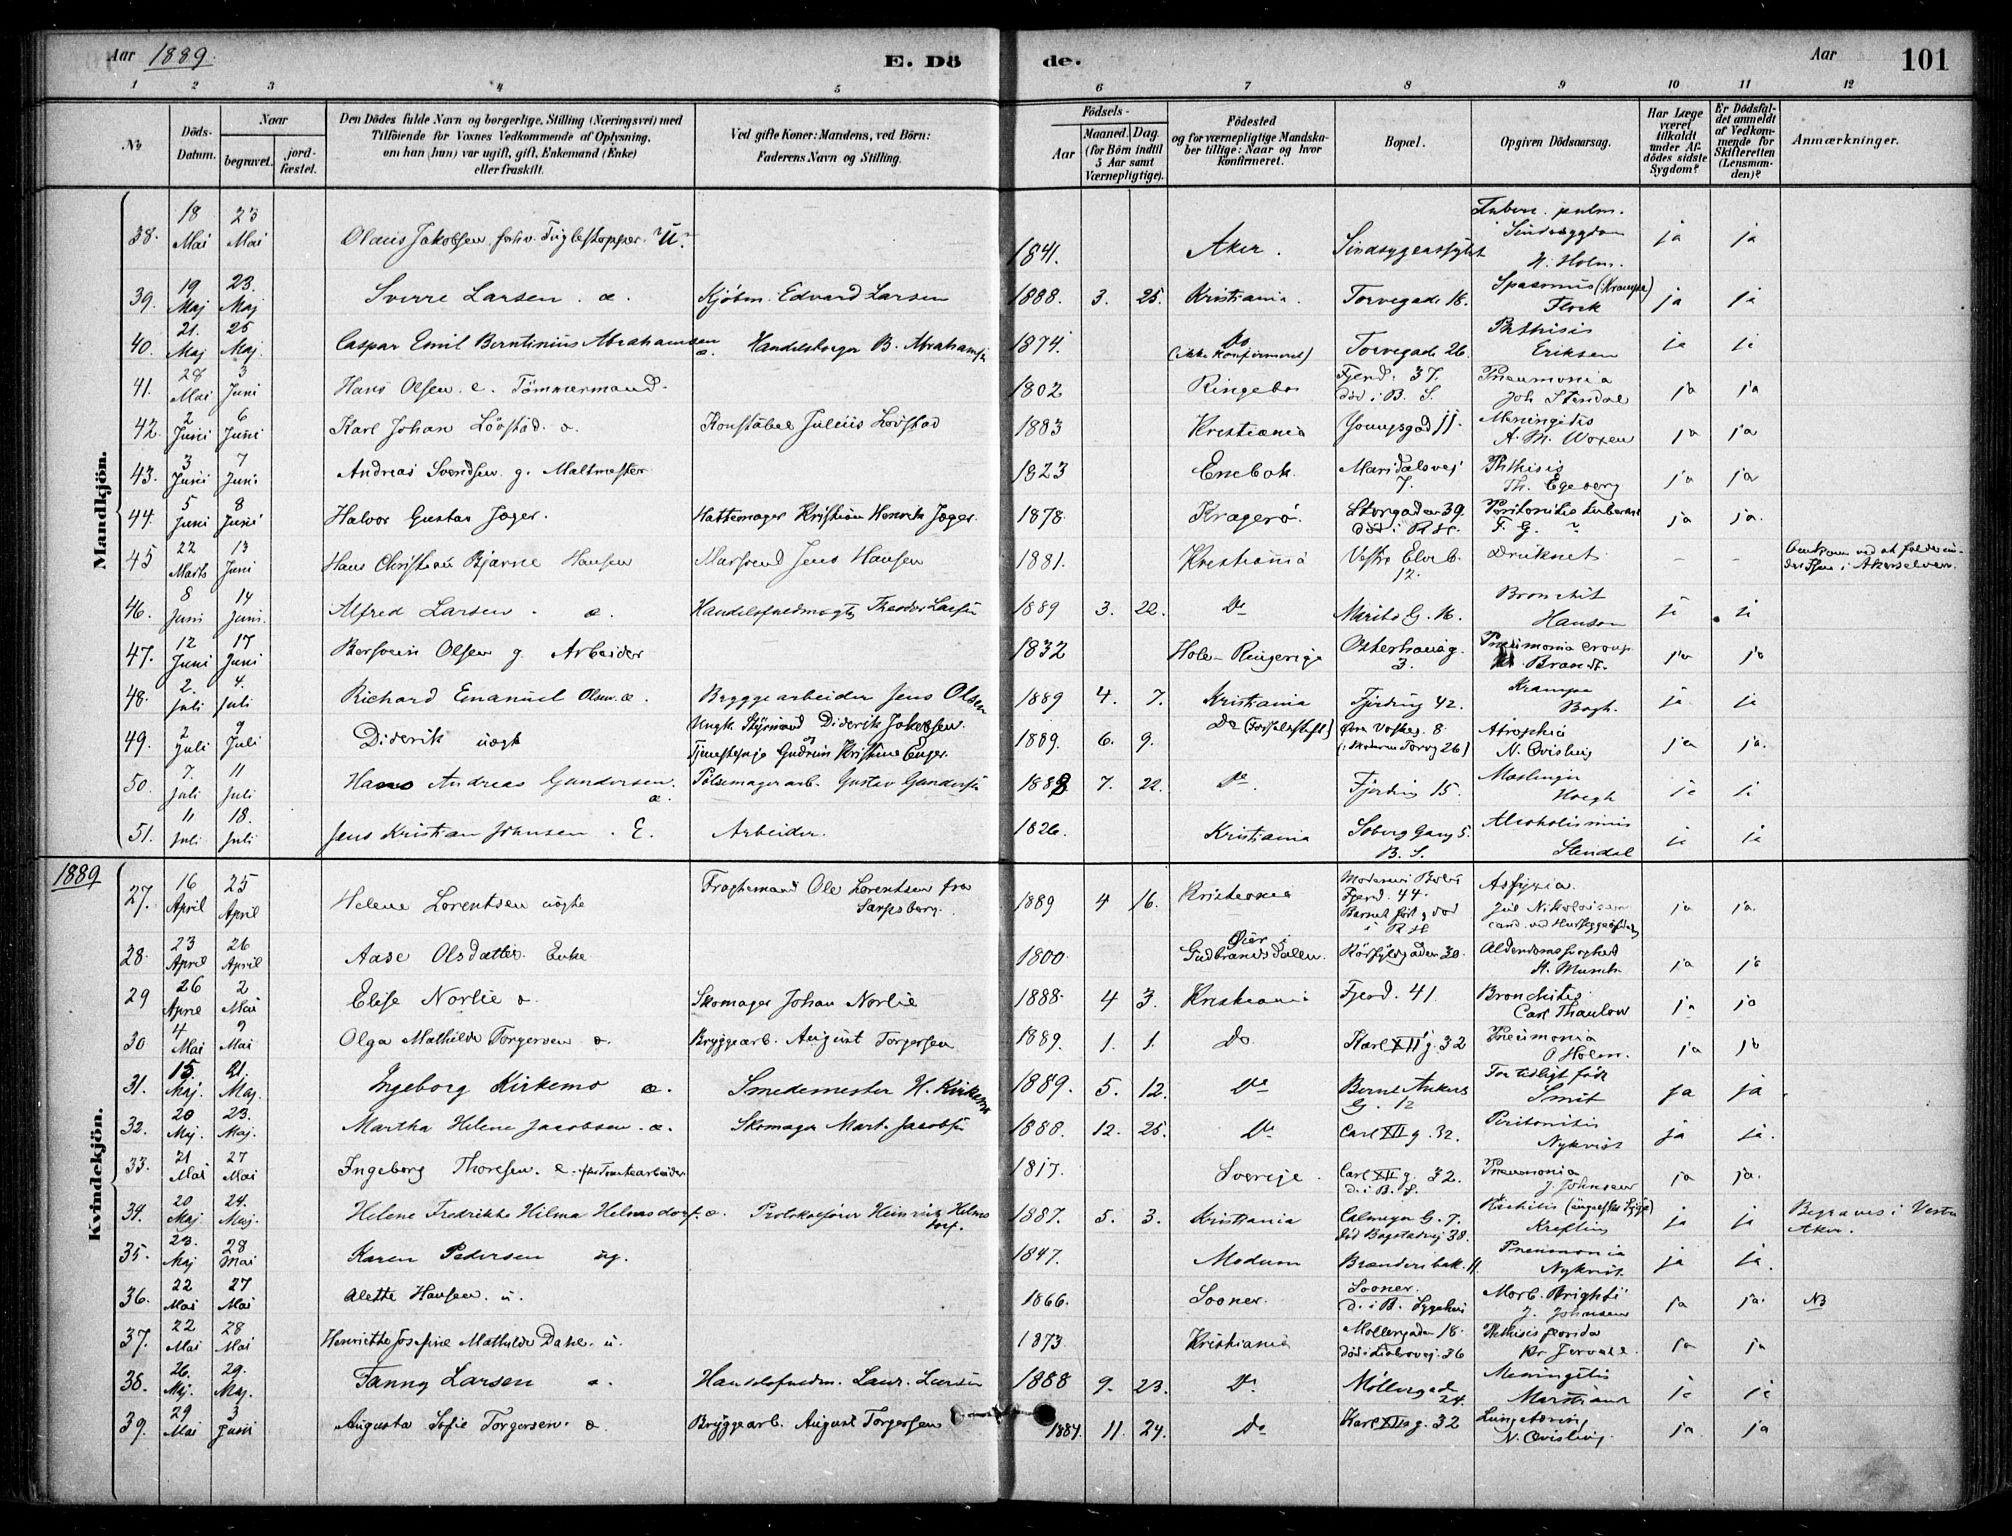 Aar 1889. E. Döde. Aar 101
1 2 3 4 5 6 7 8 9 10 11 12
No
Döds-Datum.
Naar
begravet.
jord-fæstet.
Den Dödes fulde Navn og borgerlige Stilling (Næringsvei) med
Tilföiende for Voxnes Vedkommende af Oplysning,
om han (hun) var ugift, gift, Enkemand (Enke)
eller fraskilt.
Ved gifte Koner: Mandens, ved Börn:
Faderens Navn og Stilling.
Födsels-
Aar
Maaned. Dag.
(for Börn indtil
5 Aar samt
Værnepligtige).
Födested
og for værnepligtige Mandska-
ber tillige: Naar og hvor
Konfirmeret.
Bopæl.
Opgiven Dödsaarsag.
Har Læge
været
tilkaldt
under Af-
dödes sidste
Sygdom?
Er Dödsfal-
det anmeldt
af Vedkom-
mende for
Skifteretten
(Lensman-
den)?
Anmærkninger.
Mandkjön.
38. 18 Mai 23 Mai Olaus Jakobsen U. 1841. Aker. Tuberc. pulm. Sindssygdom H. Holm. ja ja
39. 19 Maj 23. Maj Sverre Larsen. æ. Kjöbm. Edvard Larsen 1888. 3. 25. Kristiania. Torvegade 18. Spasmus (Krampe) Flock ja ja
40. 21. Maj 25 Maj. Caspar Emil Berntinius Abrahamsen æ. Handelsborger B. Abrahamsen 1874. Do (ikke konfirmeret) Torvegade 26. Phthisis Eriksen ja ja
41. 28 Mai 3 Juni Hans Olsen. e. Tömmermand. 1802 Ringebo Fjerd. 37. död i B. S. Pneumonia Joh Stendal ja ja
42. 2 Juni 6 Juni Karl Johan Lövstad. æ. Konstabel Julius Lövstad 1883 Kristiania Youngsgad 11. Meningitis A. M. Woxen ja ja
43. 3 Juni 7 Juni Andreas Svendsen g. Maltmester 1823 Enebak Maridalsvej 7. Phthisis Th. Egeberg ja ja
44. 5 Juni 8 Juni Halvor Gustav Jæger. Hattemager Kristian Henrik Jæger. 1878. Kragerö. Storgaden 39. död i RH. Peritonitis tubercul. F. G. ja ja.
45 22 Marts 13 Juni Hans Christian Bjarne Hansen Jens Hansen 1881. Kristiania Vestre Elveb. 12. Druknet - - Omkom ved at falde i Akerselven.
46. 8 Juni 14 Juni. Alfred Larsen. æ. Handelsfuldmægtg Theodor Larsen 1889 3. 22. Do Bronchit Hanson ja ja
47. 12 Juni 17 Juni Bersvein Olsen g. Arbeider 1832 Hole - Ringerige Osterhausg. 3. Pneumonia croup. Brandt. ja ja
48. 2. Juli 4. Juli Richard Emanuel Olsen. æ. Bryggearbeider Jens Olsen 1889 4. 7. Kristiania Fjerding 42. Krampe Bogh. ja ja
49. 2 Juli 9 Juli Diderik uægt Ungk. Styrmand Diderik Jakobsen og Tjenestepige Gudrun Kristine Enger. 1889. 6. 9. Do (Fødselsstift) Atrophia N. Qvisling ja ja.
50. 7. Juli 11 Juli Hans Andreas Gundersen. æ. Pölsemagerarb. Gustav Gundersen 1888 7. 22. Do Fjerding 15. Meslinger Hoegh ja ja
51. 11 Juli 18. Juli Jens Kristian Johnsen. E. Arbeider. 1826. Kristiania B. S. Alcoholismus Stendal ja ja
1889
Kvindekjön.
27. 16 April 25 April Helene Lorentsen uægte Fragtemand Ole Lorentsen fra Sarpsborg. 1889 4 16. Kristiania Moderens Bolig Fjerd. 44. Barnet födt og död i RH Asfyxia ja ja.
28. 23 April 26 April Aase Olsdatter Enke 1800. Öier i Gudbrandsdalen. 30. Alderdomssvaghed H. Munch ja ja
29 26 April 2 Mai Elise Norlie æ. Skomager Johan Norlie 1888. 4 3. Kristiania Fjerd. 41. Bronchitis Carl Thaulow ja ja
30 4 Mai 9 Mai Olga Mathilde Torgersen æ. Bryggearb. August Torgersen 1889. 1. 1. Do Karl XII g. 32 Pneumonia O Holm. ja ja
31. 15. Maj. 21. Maj. Ingeborg Kirkemo æ. Smedemester H. Kirkemo 1889. 5. 12. Do Bernt Ankers G. 12 For tidligt född Smit ja ja
32. 20 Maj. 23. Maj. Martha Helene Jacobsen. æ. Skomager Mart. Jacobsen 1888. 12. 25. Do Carl XII g. 32. Peritonitis Nykvist ja ja.
33. 21 Mai 27 Mai Ingeborg Thoresen. e. 1817. Sverige. Carl XII g. 32. d. i B. S. Pneumonia J. Johnsen ja ja.
34. 20 Maj 24. Maj. Helene Fredrikke Hilma Helmsdorf. æ. Protokolförer Heinrich Helmsdorf. 1887. 5. 3. Kristiania Calmeyer G. 7. död Bogstadvej 38. Rachitis (engelsk Syge) Krefting ja ja Begraves i Vestre Aker.
35. 23. Maj 28 Mai Karen Pedersen ug. 1847. Modum Brenneribak. 11. Pneumonia Nykvist. ja ja.
36. 22 Mai 27 Mai Alette Hansen. u. 1866. Sooner. Sooner. d. i B. Sygehus Morb. Brightii J. Johnsen ja ja. NB
37. 22 Mai 28 Mai Henriette Josefine Mathilde Dahl. u. 1873. Kristiania Möllergaden 18. död i Ljabrovej. 36 Phthisis florida Dr Jervell. ja ja
38. 26. Maj. 29. Maj. Fanny Larsen æ. Handelsfuldm. Laur. Larsen 1888 9. 23. Do Möllergade 24. Meningitis Marstrand ja ja
39. 29 Mai 3 Juni Augusta Sofie Torgersen. æ Bryggearb. August Torgersen 1887. 11. 24. Do Karl XII g. 32 Lungebetænd. N. Qvisling. ja ja